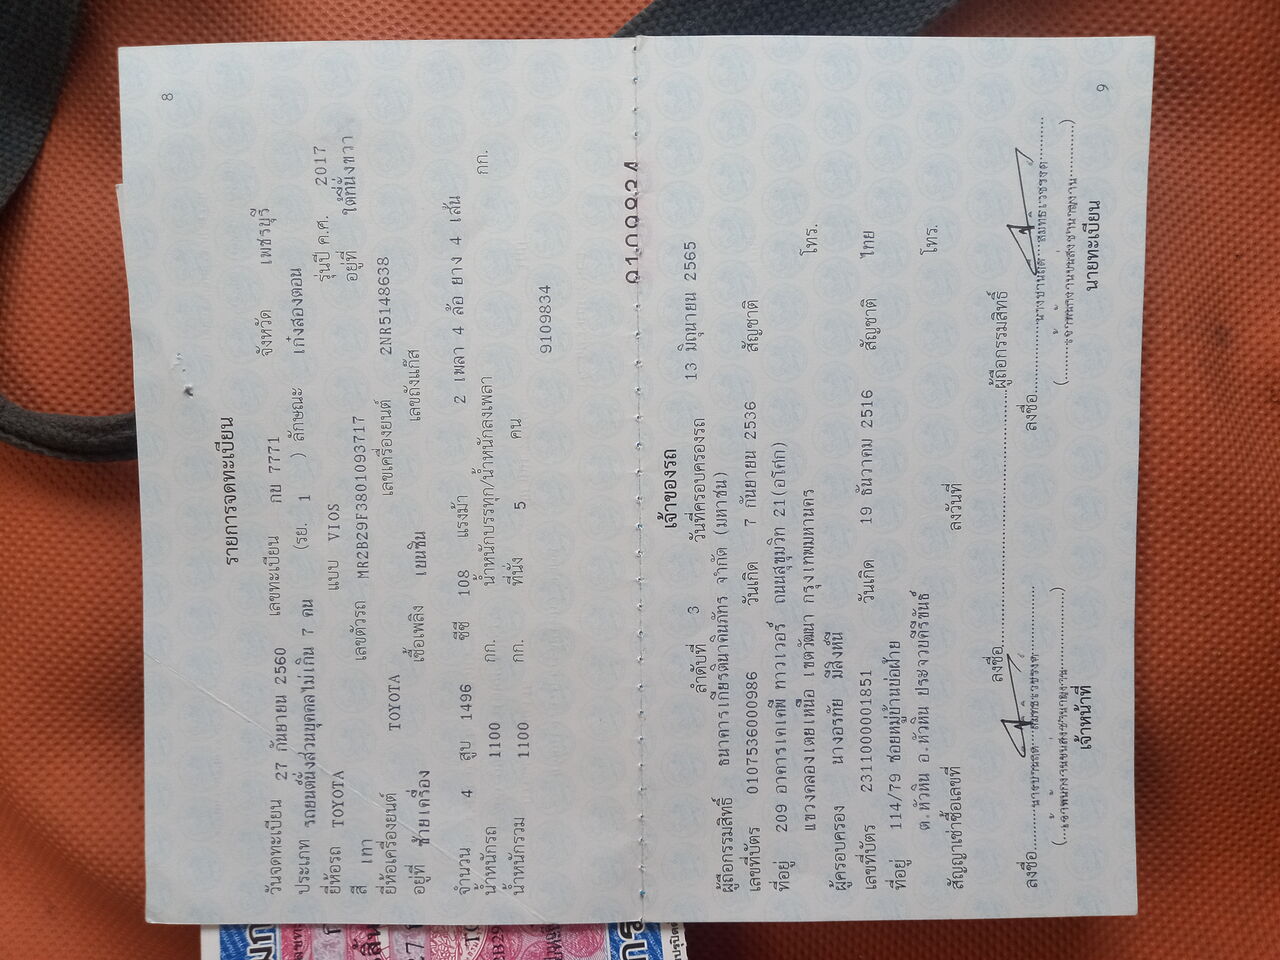 8
รายการจดทะเบียน
วันจดทะเบียน 27 กันยายน 2560 เลขทะเบียน กบ 7771 จังหวัด เพชรบุรี
ประเภท รถยนต์นั่งส่วนบุคคลไม่เกิน 7 คน (รย. 1 ) ลักษณะ เก๋งสองตอน
ยี่ห้อรถ TOYOTA แบบ VIOS รุ่นปี ค.ศ. 2017
สี เทา เลขตัวรถ MR2B29F3801093717 อยู่ที่ ใต้ที่นั่งขวา
ยี่ห้อเครื่องยนต์ TOYOTA เลขเครื่องยนต์ 2NR5148638
อยู่ที่ ซ้ายเครื่อง เชื้อเพลิง เบนซิน เลขถังแก๊ส
จำนวน 4 สูบ 1496 ซีซี 108 แรงม้า 2 เพลา 4 ล้อ ยาง 4 เส้น
น้ำหนักรถ 1100 กก. น้ำหนักบรรทุก/น้ำหนักลงเพลา กก.
น้ำหนักรวม 1100 กก. ที่นั่ง 5 คน
9109834
เจ้าของรถ
ลำดับที่ 3 วันที่ครอบครองรถ 13 มิถุนายน 2565
ผู้ถือกรรมสิทธิ์ ธนาคารเกียรตินาคินภัทร จำกัด (มหาชน)
เลขที่บัตร 0107536000986 วันเกิด 7 กันยายน 2536 สัญชาติ
ที่อยู่ 209 อาคารเคเคพี ทาวเวอร์ ถนนสุขุมวิท 21(อโศก)
แขวงคลองเตยเหนือ เขตวัฒนา กรุงเทพมหานคร โทร.
ผู้ครอบครอง นางอรทัย มีสิงห์นี
เลขที่บัตร 2311000001851 วันเกิด 19 ธันวาคม 2516 สัญชาติ ไทย
ที่อยู่ 114/79 ซอยหมู่บ้านบ่อฝ้าย
ต.หัวหิน อ.หัวหิน ประจวบคีรีขันธ์ โทร.
สัญญาเช่าซื้อเลขที่ ลงวันที่
ลงชื่อ ผู้ถือกรรมสิทธิ์
ลงชื่อ ลงชื่อ
(เจ้าพนักงานขนส่งชำนาญงาน) (เจ้าพนักงานขนส่งชำนาญงาน)
เจ้าหน้าที่ นายทะเบียน
9